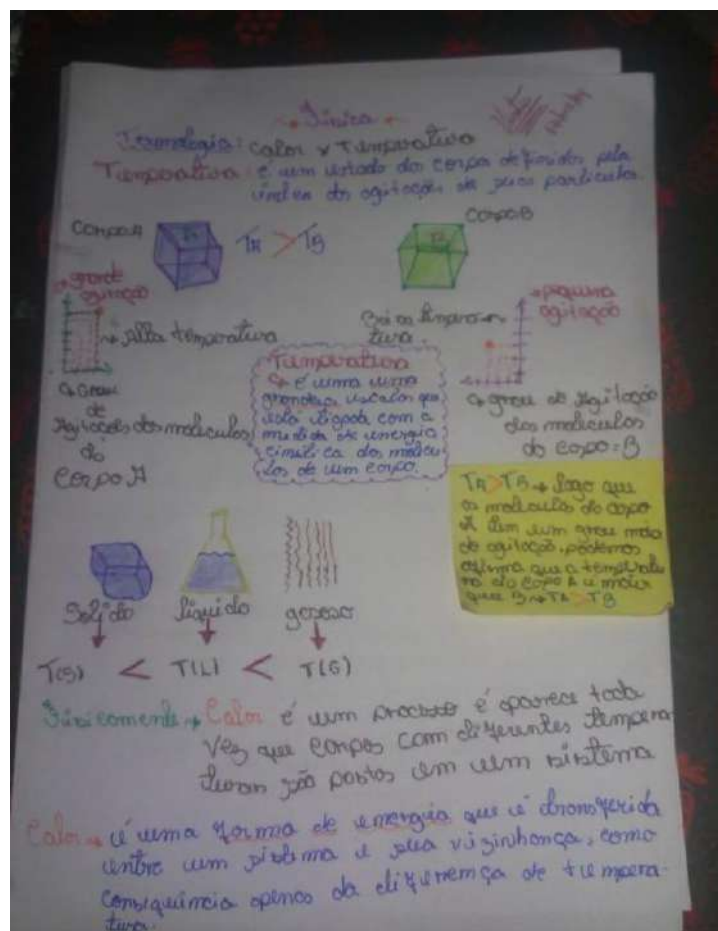 Física
Termologia: Calor x Temperatura
Temperatura: é um estado dos corpos definidos pela
índice de agitação de suas particulas
Corpo A
TA > TB
Corpo B
grande
agitação
Alta temperatura
Baixa tempera-
tura.
pequena
agitação
Grau
de
Agitações das moleculas
do
Corpo A
Temperatura
é uma uma
grandeza escalar que
está ligada com a
medida de energia
cinética das molécu
las de um corpo.
grau de Agitação
das moleculas
do corpo = B
TA > TB → Logo que
as moleculas do corpo
A tem um grau maio
de agitação, podemos
afirma que a temperatu
ra do corpo A e maior
que B → TA > TB
Sólido
líquido
gasoso
T(S) < T(L) < T(G)
Fisicamente → Calor é um processo é aparece toda
vez que corpos com diferentes tempera
turas são postos em um sistema
Calor → é uma forma de energia que é transferida
entre um sistema e sua vizinhança, como
consequência apenas da diferença de tempera-
tura.